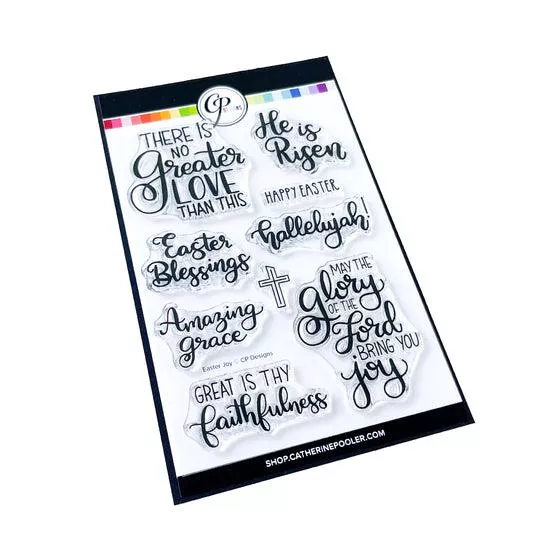 CP
DESIGNS
THERE IS
NO
Greater
LOVE
THAN THIS
He is
Risen
HAPPY EASTER
hallelujah!
Easter
Blessings
MAY THE
Glory
OF THE
Lord
BRING YOU
joy
Amazing
grace
Easter Joy © CP Designs
GREAT IS THY
faithfulness
SHOP.CATHERINEPOOLER.COM